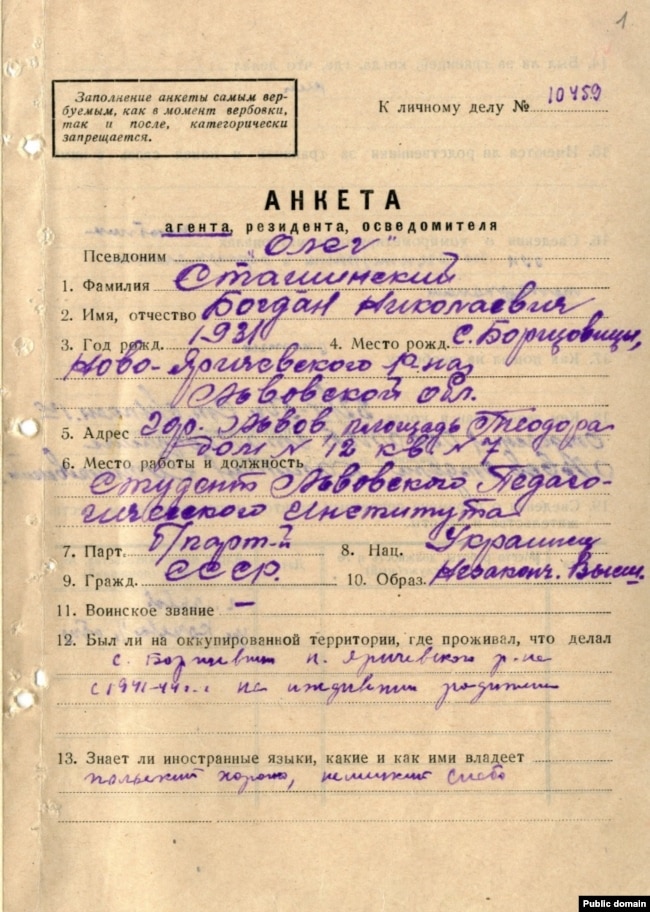 1
Заполнение анкеты самым вер-
буемым, как в момент вербовки,
так и после, категорически
запрещается.
К личному делу № 10459
АНКЕТА
агента, резидента, осведомителя
Псевдоним „Олег"
1. Фамилия Сташинский
2. Имя, отчество Богдан Николаевич
3. Год рожд. 1931 4. Место рожд. с. Борщовицы,
Ново-Яричевского р-на,
Львовской обл.
5. Адрес гор. Львов площадь Теодора
дом № 12 кв № 7
6. Место работы и должность
Студент Львовского Педаго-
гического Института
7. Парт. б/парт-й 8. Нац. Украинец
9. Гражд. СССР. 10. Образ. Незаконч. Высш.
11. Воинское звание —
12. Был ли на оккупированной территории, где проживал, что делал
с. Борщевичи Н. Яричевского р-на
с 1941-44 г. на иждивении родителей
13. Знает ли иностранные языки, какие и как ими владеет
польский хорошо, немецкий слабо
Public domain